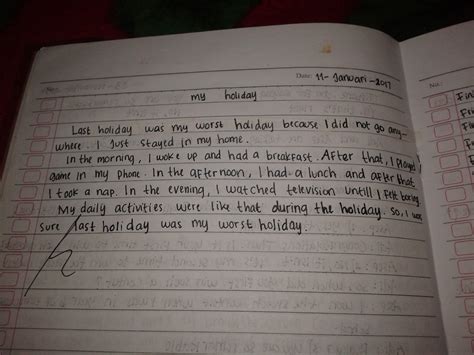 Date: 11 - Januari - 2017
my holiday
Last holiday was my worst holiday because I did not go any-
where. I Just stayed in my home.
In the morning, I woke up and had a breakfast. After that, I played
game in my phone. In the afternoon, I had a lunch and after that
I took a nap. In the evening, I watched television untill I felt boring
My daily activities were like that during the holiday. So, I was
sure last holiday was my worst holiday.
No: